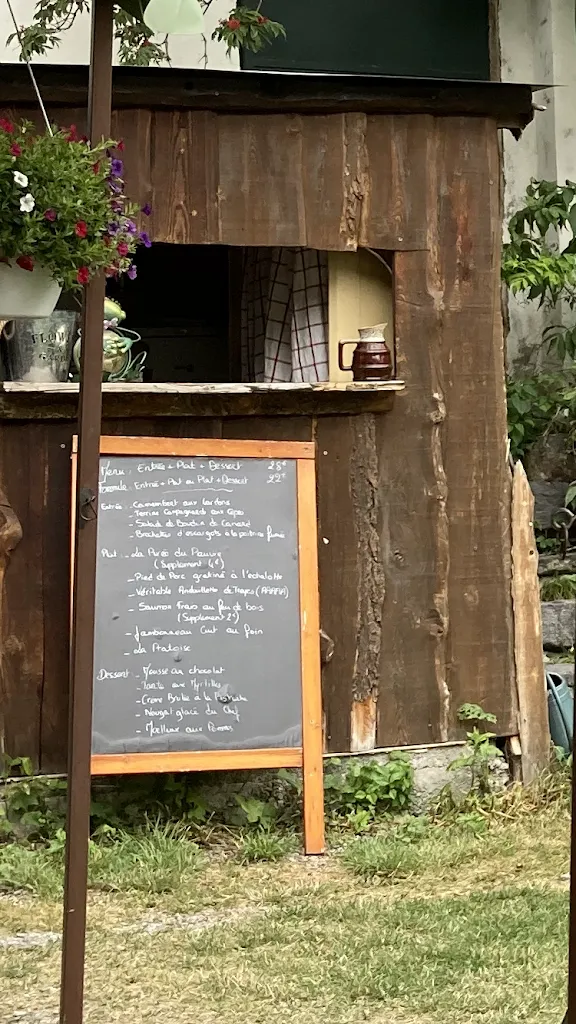 Menu : Entrée + Plat + Dessert 28€
Formule : Entrée + Plat ou Plat + Dessert 22€
Entrée - Camembert aux lardons
- Terrine Campagnarde aux
- Salade de Boudin de Canard
- Brochettes d'escargots à la poitrine fumée
Plat - La Purée du Pauvre
(Supplément 4€)
- Pied de Porc gratiné à l'échalotte
- Véritable Andouillette de Troyes (AAAAA)
- Saumon Frais au feu de bois
(Supplément 2€)
- Jambonneau Cuit au foin
- La
Dessert - Mousse au chocolat
- Tarte aux Myrtilles
- Crème Brulée à la
- Nougat glacé du Chef
- Moelleux aux Pommes